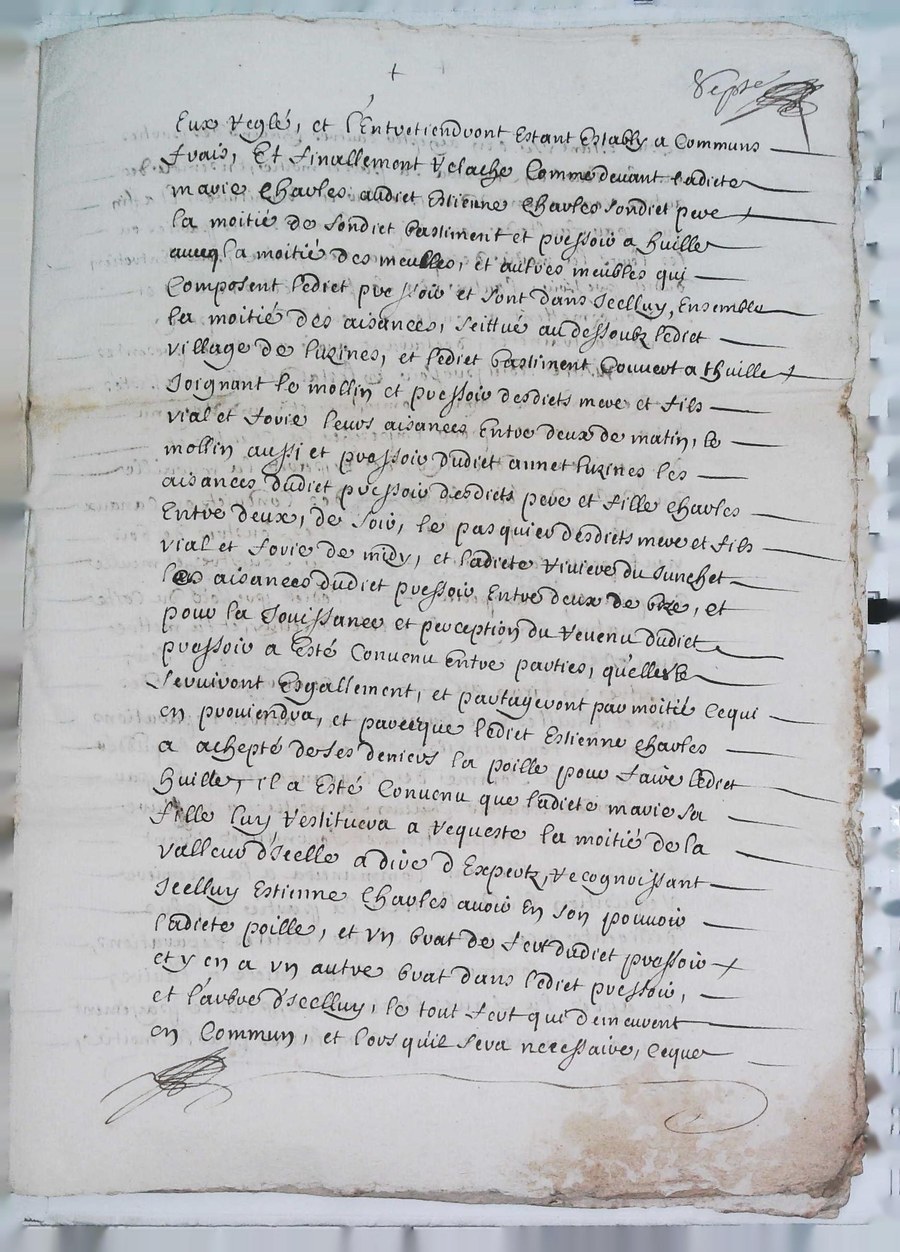 Eux reglé, et l'Entretiendront Estant Establÿ a Communs
frais, Et finallement relache Comme devant ladicte
marie Charles audict Estienne Charles sondict pere
la moitié de sondict bastiment et pressoir a huille
aueq la moitié des meulles, et autres meubles qui
Composent ledict pressoir et sont dans Icelluy, Ensemble
la moitié des aisances, seittué au dessoubz ledict
village de luzines, et ledict bastiment Couuert a thuille
Joignant le mollin et pressoir desdicts mere et fils
vial et forie leurs aisances Entre deux de matin, le
mollin aussi et pressoir dudict annet luzines les
aisances dudict pressoir desdicts pere et fille Charles
Entre deux, de soir, le pasquier desdicts mere et fils
vial et forie de midy, et ladicte riviere du Junchet
les aisances dudict pressoir Entre deux de bize, et
pour la Jouissance et perception du revenu dudict
pressoir a Esté Convenu Entre parties, qu'elles se
serviront Esgallement, et partageront par moitié Cequi
en proviendra, et parceque ledict Estienne Charles
a achepté de ses deniers la poille pour faire ledict
huille, il a Esté Convenu que ladicte marie sa
fille luy restituera a requeste la moitié de la
valleur d'Icelle a dire d'Expertz, recognoissant
Icelluy Estienne Charles avoir En son pouvoir
ladicte poille, et vn brat de fert dudict pressoir
et y en a vn autre brat dans ledict pressoir,
et l'arbre d'Icelluy, le tout fert qui demeurent
en Commun, et lors quil sera necessaire, Ceque